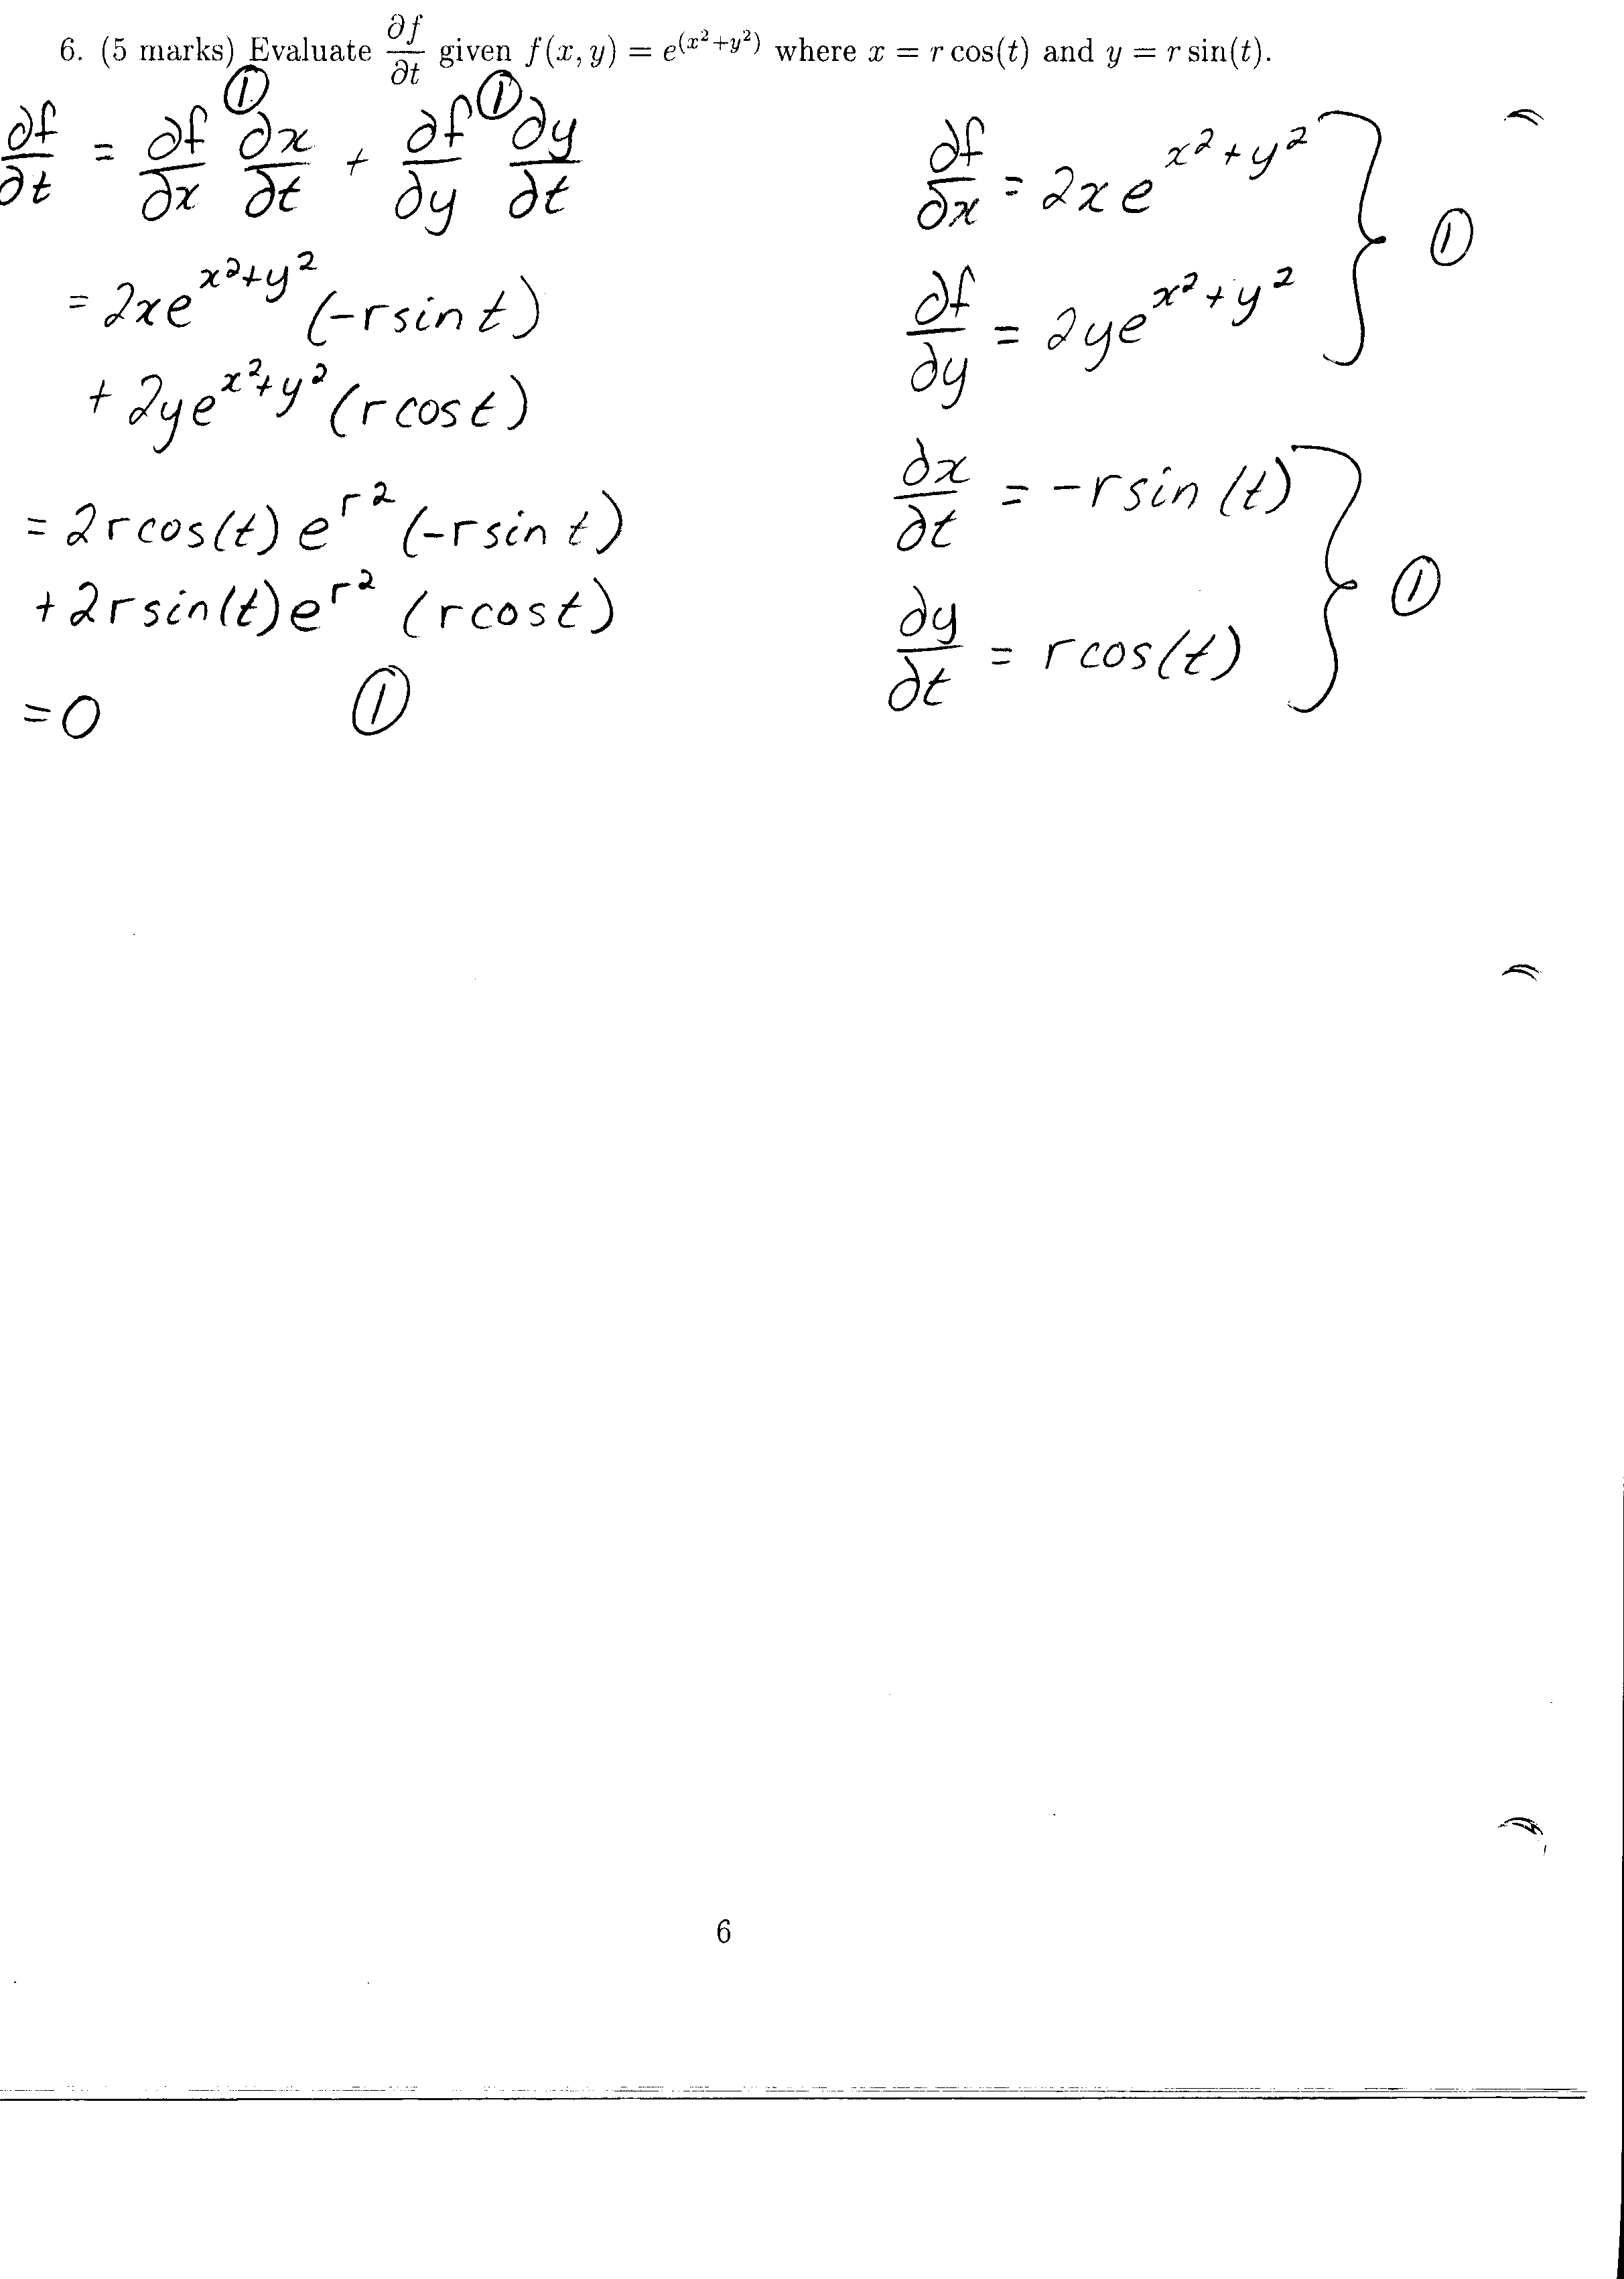 6. (5 marks) Evaluate ∂f/∂t given f(x, y) = e^(x²+y²) where x = r cos(t) and y = r sin(t).
① ①
∂f/∂t = ∂f/∂x ∂x/∂t + ∂f/∂y ∂y/∂t
= 2xe^x²+y² (-r sin t)
+ 2ye^x²+y² (r cos t)
= 2r cos(t) e^r² (-r sin t)
+ 2r sin(t) e^r² (r cos t)
= 0 ①
∂f/∂x = 2xe^x²+y²
∂f/∂y = 2ye^x²+y²
} ①
∂x/∂t = -r sin (t)
∂y/∂t = r cos(t)
} ①
6